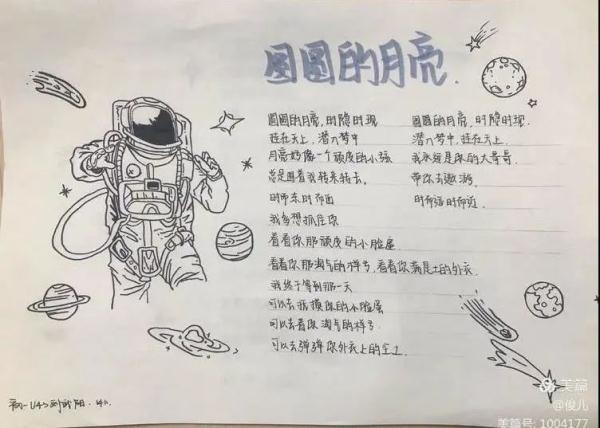 圆圆的月亮.
圆圆的月亮,时隐时现
挂在天上,潜入梦中
月亮好像一个顽皮的小孩
总是围着我转来转去。
时而东时而西
我多想抓住你
看看你那顽皮的小脸蛋
看看你那淘气的样子,看看你满是土的外衣.
我终于等到那一天
可以去摸摸你的小脸蛋
可以去看你淘气的样子
可以去弹弹你外衣上的尘土.
圆圆的月亮,时隐时现.
潜入梦中,挂在天上.
我永远是你的大哥哥
带你去遨游.
时而远时而近.
美篇
@俊儿
美篇号: 1004177